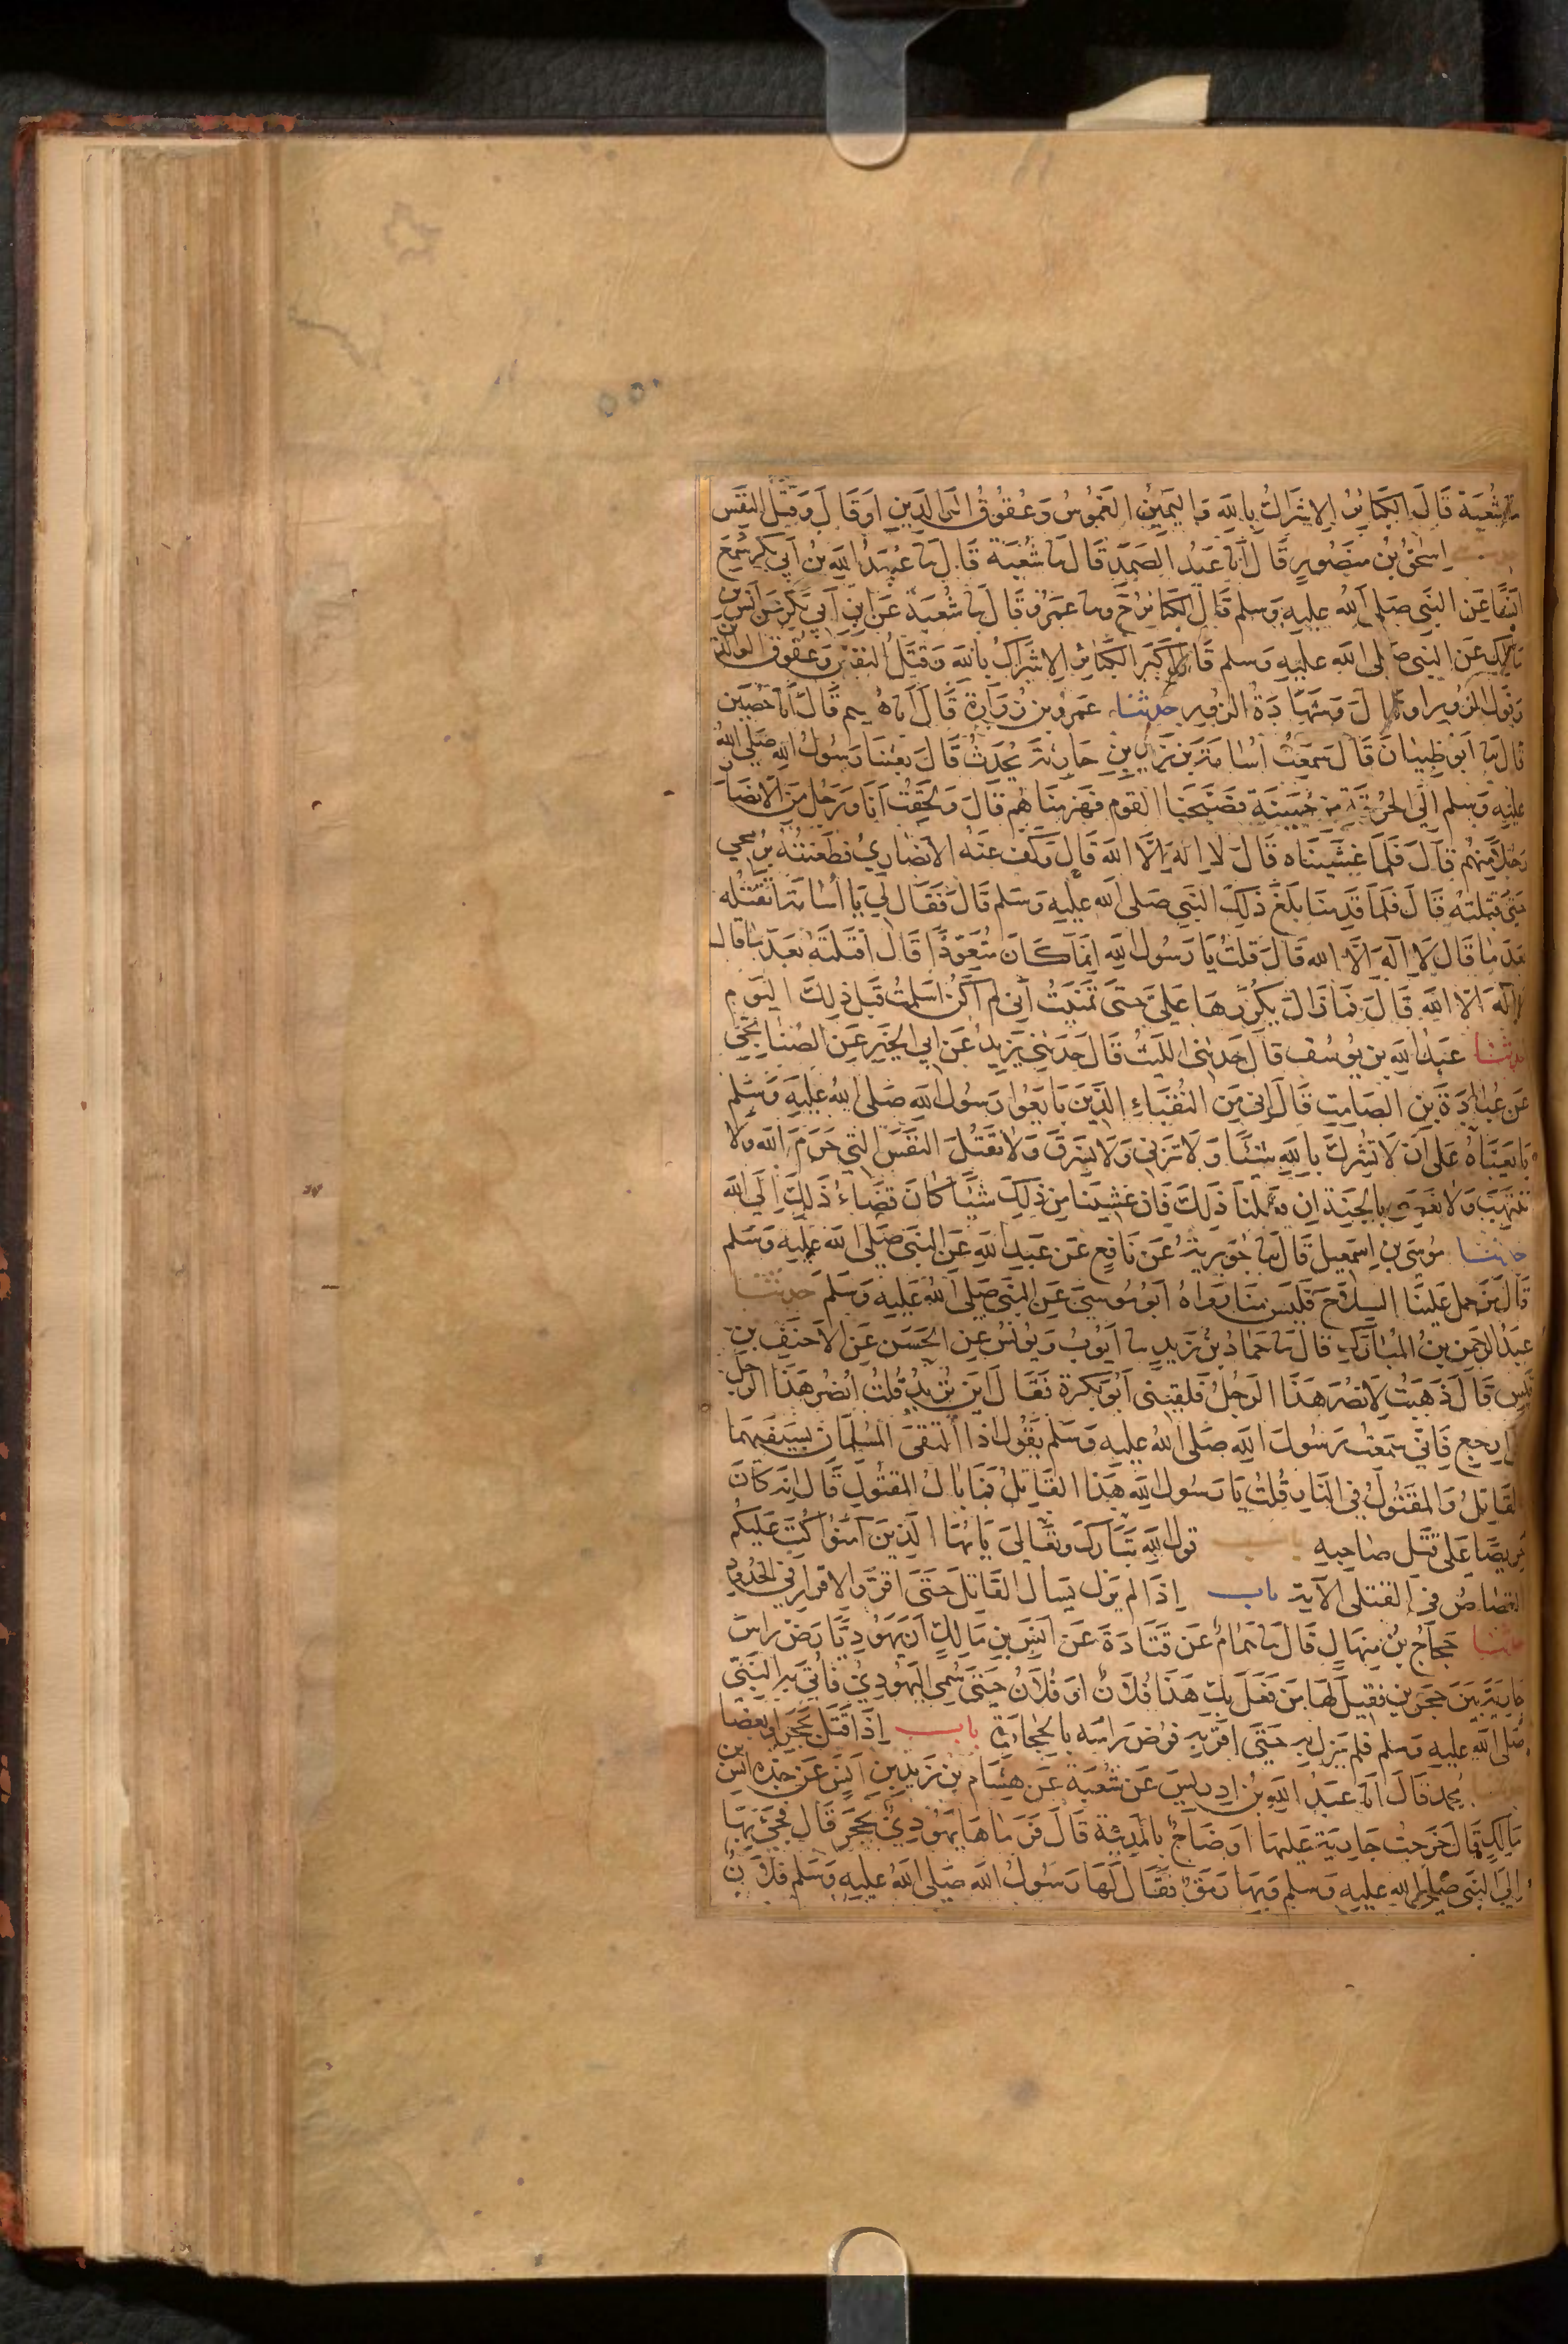 شُعْبَة قَالَ الكَبَائِرُ الاِشْرَاكُ بِاللهِ وَاليَمِينُ الغَمُوسُ وَعُقُوقُ الوَالِدَيْنِ اَوْ قَالَ وَقَتْلُ النَفْسِ
اِسْحٰقُ بْنُ مَنْصُورٍ قَالَ انا عَبْدُ الصَمَدِ قَالَ ثنا شُعْبَة قَالَ ثنا عُبَيْدُ اللهِ بْنُ اَبِي بَكْرٍ سَمِعَ
اَنَسًا عَنِ النَبِيِ صَلى اللهُ عليهِ وَسلم قَالَ الكَبَائِرُ ح وثنا عَمْرٌو قَالَ ثنا شُعْبَة عَنِ ابْنِ اَبِي بَكْرٍ عَنْ اَنَسِ بْنِ
مَالِكٍ عَنِ النَبِي صَلى الله عليهِ وَسلم قَالَ اَكْبَرُ الكَبَائِرِ الاِشْرَاكُ بِاللهِ وَقَتْلُ النَفْسِ وَعُقُوقُ الوَالِدَيْنِ
وَقَوْلُ الزُورِ اوقَالَ وَشَهَادَةُ الزُورِ حدثنا عَمْرُو بْنُ زُرَارَةَ قَالَ اَنا هُشيم قَالَ اَنَا حُصَيْن
قَالَ ثنا اَبُو ظِبْيَانَ قَالَ سَمِعْتُ اُسَامَةَ بْنَ زَيْدِ بْنِ حَارِثَةَ يُحَدِثُ قَالَ بَعَثَنَا رَسُولُ اللهِ صَلى اللهُ
عليهِ وَسلم اِلَى الحُرَقَةِ مِنْ جُهَيْنَةَ فَصَبَّحْنَا القَومَ فَهَزَمْنَاهُم قَالَ وَلَحِقْتُ اَنَا وَرَجُلٌ مِنَ الاَنْصَارِ
رَجُلاً مِنْهُمْ قَالَ فَلَمَّا غَشِينَاهُ قَالَ لَا اِلَهَ اِلَّا الله قَالَ فَكَفَّ عَنْهُ الاَنْصَارِيُّ فَطَعَنْتُهُ بِرُمْحِي
حَتَّى قَتَلْتُهُ قَالَ فَلَمَّا قَدِمْنَا بَلَغَ ذَلِكَ النَبِيَ صَلى الله عليهِ وَسَلم قَالَ فَقَالَ لِي يَا اُسَامَةُ اَقَتَلْتَه
بَعْدَ مَا قَالَ لَا اِلَهَ اِلَّا الله قَالَ قُلْتُ يَا رَسُولَ اللهِ اِنَّمَا كَانَ مُتَعَوِّذًا قَالَ اَقَتَلْتَهُ بَعْدَ مَا قَالَ
لَا اِلَهَ اِلَّا الله قَالَ فَمَا زَالَ يُكَرِّرُهَا عَلَيَّ حَتَّى تَمَنَّيْتُ اَنِي لَمْ اَكُنْ اَسْلَمْتُ قَبْلَ ذَلِكَ اليَوْمِ
حدثنا عَبْدُ اللهِ بن يُوسُف قَالَ حَدَثَنِي اللَيْثُ قَالَ حَدَثَنِي يَزِيدُ عَنْ اَبِي الخَيْرِ عَنِ الصُنَابِحِيِ
عَنْ عُبَادَةَ بْنِ الصَامِتِ قَالَ اِنِّي مِنَ النُقَبَاءِ الَّذِينَ بَايَعُوا رَسُولَ اللهِ صَلى اللهُ عليهِ وَسَلم
بَايَعْنَاهُ عَلَى اَنْ لَا نُشْرِكَ بِاللهِ شَيْئًا وَلَا نَزْنِي وَلَا نَسْرِقَ وَلَا نَقْتُلَ النَفْسَ الَّتِي حَرَمَ الله وَلَا
نَنْتَهِبَ وَلَا نَعْصِي بِالجَنَةِ اِنْ فَعَلْنَا ذَلِكَ فَاِنْ غَشِينَا مِنْ ذَلِكَ شَيْئًا كَانَ قَضَاءُ ذَلِكَ اِلَى الله
حدثنا مُوسَى بْنُ اِسْمَعِيلَ قَالَ ثنا جُوَيْرِيَةُ عَنْ نَافِعٍ عَنْ عَبْدِ اللهِ عَنِ النَبِيِ صَلى الله عليهِ وَسَلم
قَالَ مَنْ حَمَلَ عَلَيْنَا السِلَاحَ فَلَيْسَ مِنَّا رَوَاهُ اَبُو مُوسَى عَنِ النَبِيِ صَلى الله عليهِ وَسَلم حدثنا
عَبْدُ الرَحْمَنِ بْنُ المُبَارَكِ قَالَ ثنا حَمَادُ بْنُ زَيْدٍ ثنا اَيُوبُ وَيُونُسُ عَنِ الحَسَنِ عَنِ الاَحْنَفِ بْنِ
قَيْسٍ قَالَ ذَهَبْتُ لِاَنْصُرَ هَذَا الرَجُلَ فَلَقِيَنِي اَبُو بَكْرَةَ فَقَالَ اَيْنَ تُرِيدُ قُلْتُ اَنْصُرُ هَذَا الرَجُلَ
قَالَ ارْجِعْ فَاِنِّي سَمِعْتُ رَسُولَ اللهِ صَلى اللهُ عليهِ وَسَلم يَقُولُ اِذَا الْتَقَى المُسْلِمَانِ بِسَيْفَيْهِمَا
فَالقَاتِلُ وَالمَقْتُولُ فِي النَارِ قُلْتُ يَا رَسُولَ اللهِ هَذَا القَاتِلُ فَمَا بَالُ المَقْتُولِ قَالَ اِنَّهُ كَانَ
حَرِيصًا عَلَى قَتْلِ صَاحِبِهِ باب قَوْلِ اللهِ تَبَارَكَ وَتَعَالَى يَا اَيُّهَا الَّذِينَ آمَنُوا كُتِبَ عَلَيْكُمُ
القِصَاصُ فِي القَتْلَى الآيَة باب اِذَا لَم يَزَلْ يَسْأَلُ القَاتِلَ حَتَّى اَقَرَّ وَالاِقْرَارِ فِي الحُدُودِ
حدثنا حَجَاجُ بْنُ مِنْهَالٍ قَالَ ثنا هَمَامٌ عَنْ قَتَادَةَ عَنْ اَنَسِ بْنِ مَالِكٍ اَنَّ يَهُودِيًّا رَضَّ رَاسَ
جَارِيَةٍ بَيْنَ حَجَرَيْنِ فَقِيلَ لَهَا مَنْ فَعَلَ بِكِ هَذَا فُلَانٌ اَوْ فُلَانٌ حَتَّى سُمِيَ اليَهُودِيُ فَاُتِيَ بِهِ النَبِيَ
صَلى الله عليهِ وَسلم فَلَمْ يَزَلْ بِهِ حَتَّى اَقَرَّ بِهِ فَرَضَّ رَاسَهُ بِالحِجَارَةِ باب اِذَا قَتَلَ بِحَجَرٍ اَوْ بِعَصًا
مُحمد قَالَ اَنا عَبْدُ اللهِ بْنُ اِدْرِيسَ عَنْ شُعْبَة عَنْ هِشَامِ بْنِ زَيْدِ بْنِ اَنَسٍ عَنْ جَدِّهِ اَنَسِ بْنِ
مَالِكٍ قَالَ خَرَجَتْ جَارِيَةٌ عَلَيْهَا اَوْضَاحٌ بِالمَدِينَةِ قَالَ فَرَمَاهَا يَهُودِيٌّ بِحَجَرٍ قَالَ فَجِيءَ بِهَا
اِلَى النَبِيِ صَلى الله عليهِ وَسلم وَبِهَا رَمَقٌ فَقَالَ لَهَا رَسُولُ الله صَلى اللهُ عليهِ وَسَلم فُلَانٌ